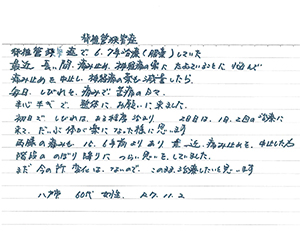 脊柱管狭窄症
脊柱管狭窄症で6.7年治療（服薬）していた
最近 長い間、痛み止め、神経痛の薬に たよっていることに 悩んで
痛み止めを中止し、神経痛の薬を減量したら、
毎日、しびれと、痛みで 苦痛の日々、
半信半疑で、整体に、お願いに来ました。
初日で しびれは、ある程度治まり 2日目は、1日、2回治療に
来て、だいぶ体が楽になった様に思います
両膝の痛みも 15、6年前よりあり 最近痛み止めを、中止した為
階段の のぼり降りに つらい思いを、していました。
まだ 今の所 変化は、ないので、このまま治療したいと思います
八戸 60代 女性、 R7.11.2